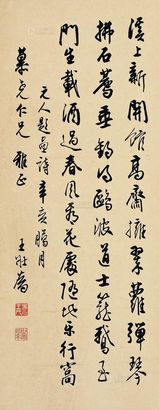 溪上新開館高齋擁翠蘿彈琴
拂石薦垂釣得鷗波道士籠鵝至
門生載酒過春風秀花處隨地樂行窩
元人題畫詩辛亥臘月
慕光仁兄雅正
王壯為